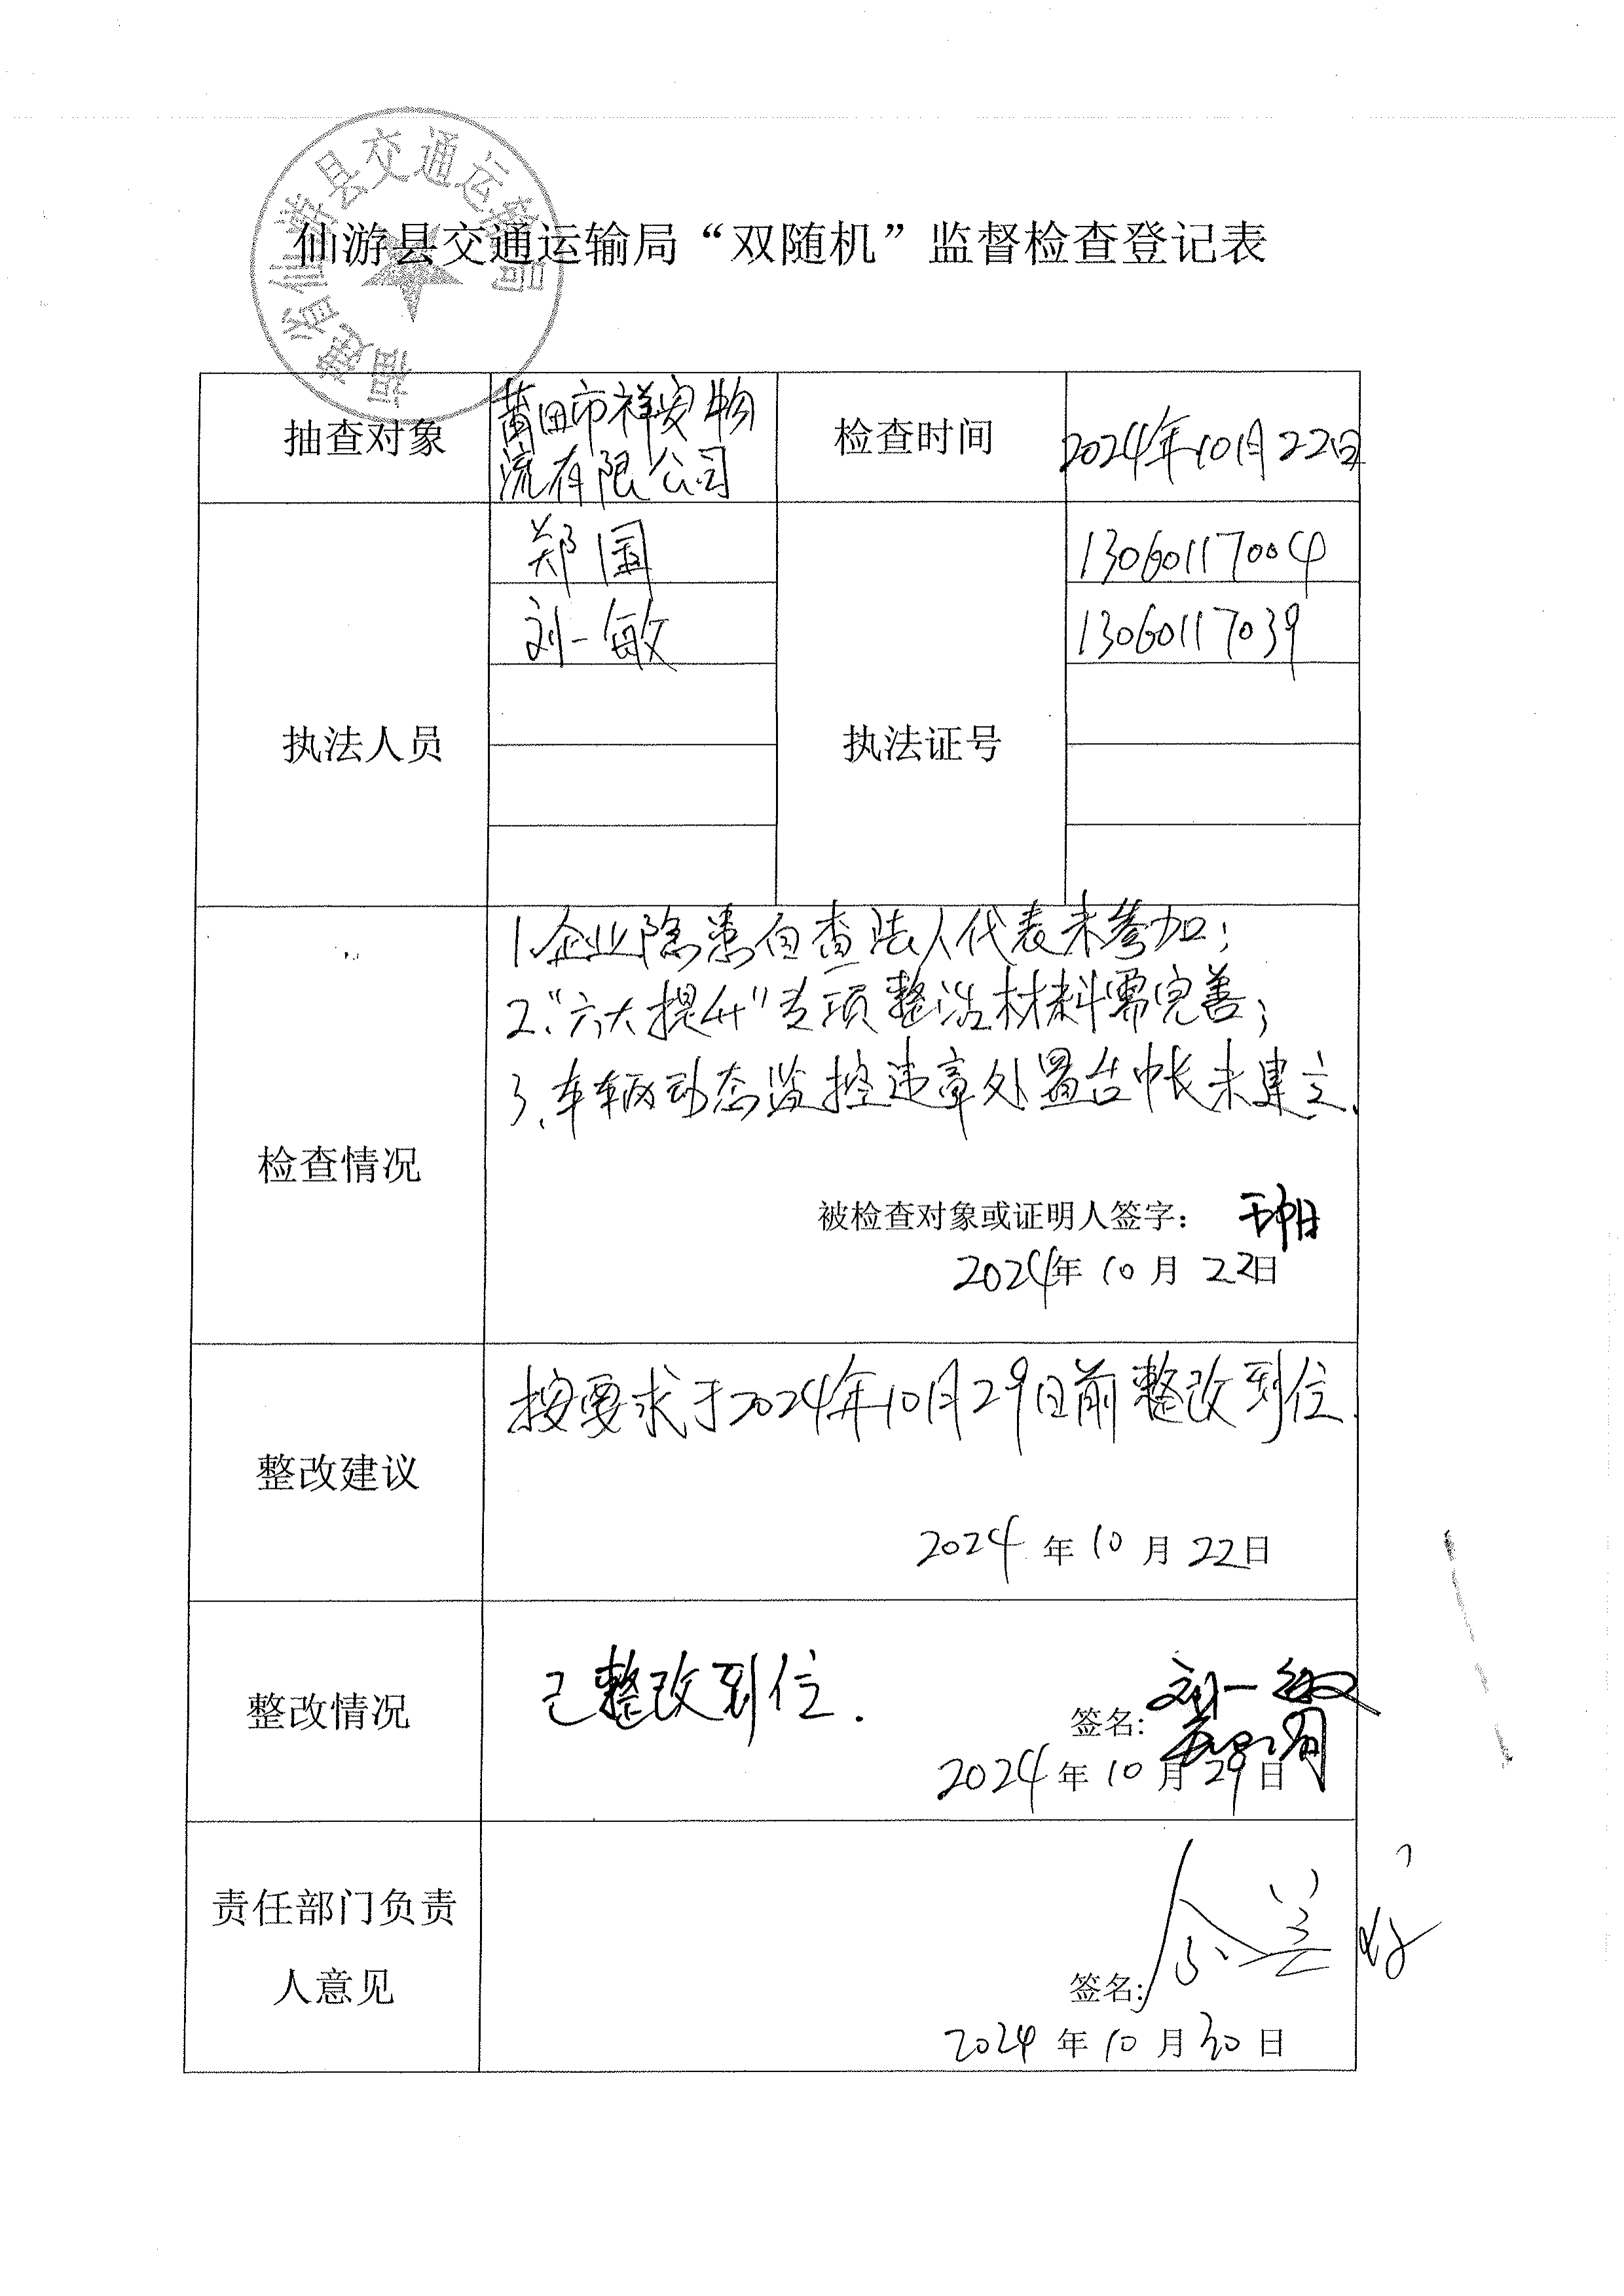 福建省仙游县交通运输局
仙游县交通运输局“双随机”监督检查登记表
抽查对象
莆田市祥安物
流有限公司
检查时间
2024年10月22日
执法人员
郑国
刘一敏
执法证号
13060117004
13060117039
检查情况
1.企业隐患自查法人代表未参加;
2、“六大提升”专项整治材料需完善;
3、车辆动态监控违章处置台帐未建立.
被检查对象或证明人签字:
2024年10月22日
整改建议
按要求于2024年10月29日前整改到位.
2024年10月22日
整改情况
已整改到位.
签名:
刘一敏
2024年10月29日
责任部门负责
人意见
签名:
2024年10月30日